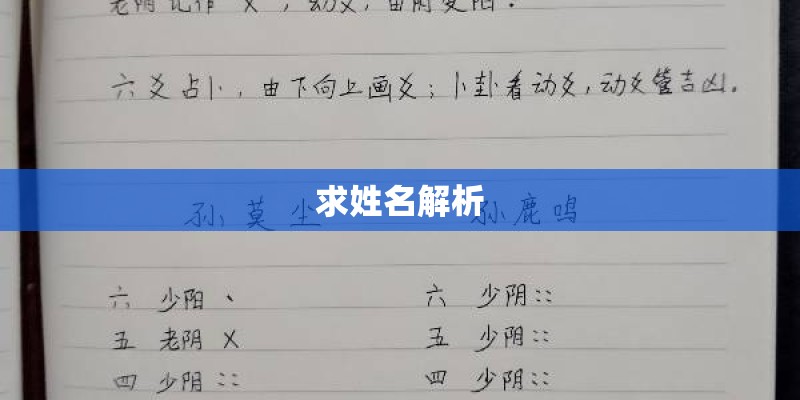 老阴记作 X，动爻，由阴变阳.
六爻占卜，由下向上画爻；卜卦看动爻，动爻管吉凶.
求姓名解析
孙莫尘 孙鹿鸣
六 少阳 、 六 少阴 ::
五 老阴 X 五 少阴 ::
四 少阴 :: 四 少阴 ::